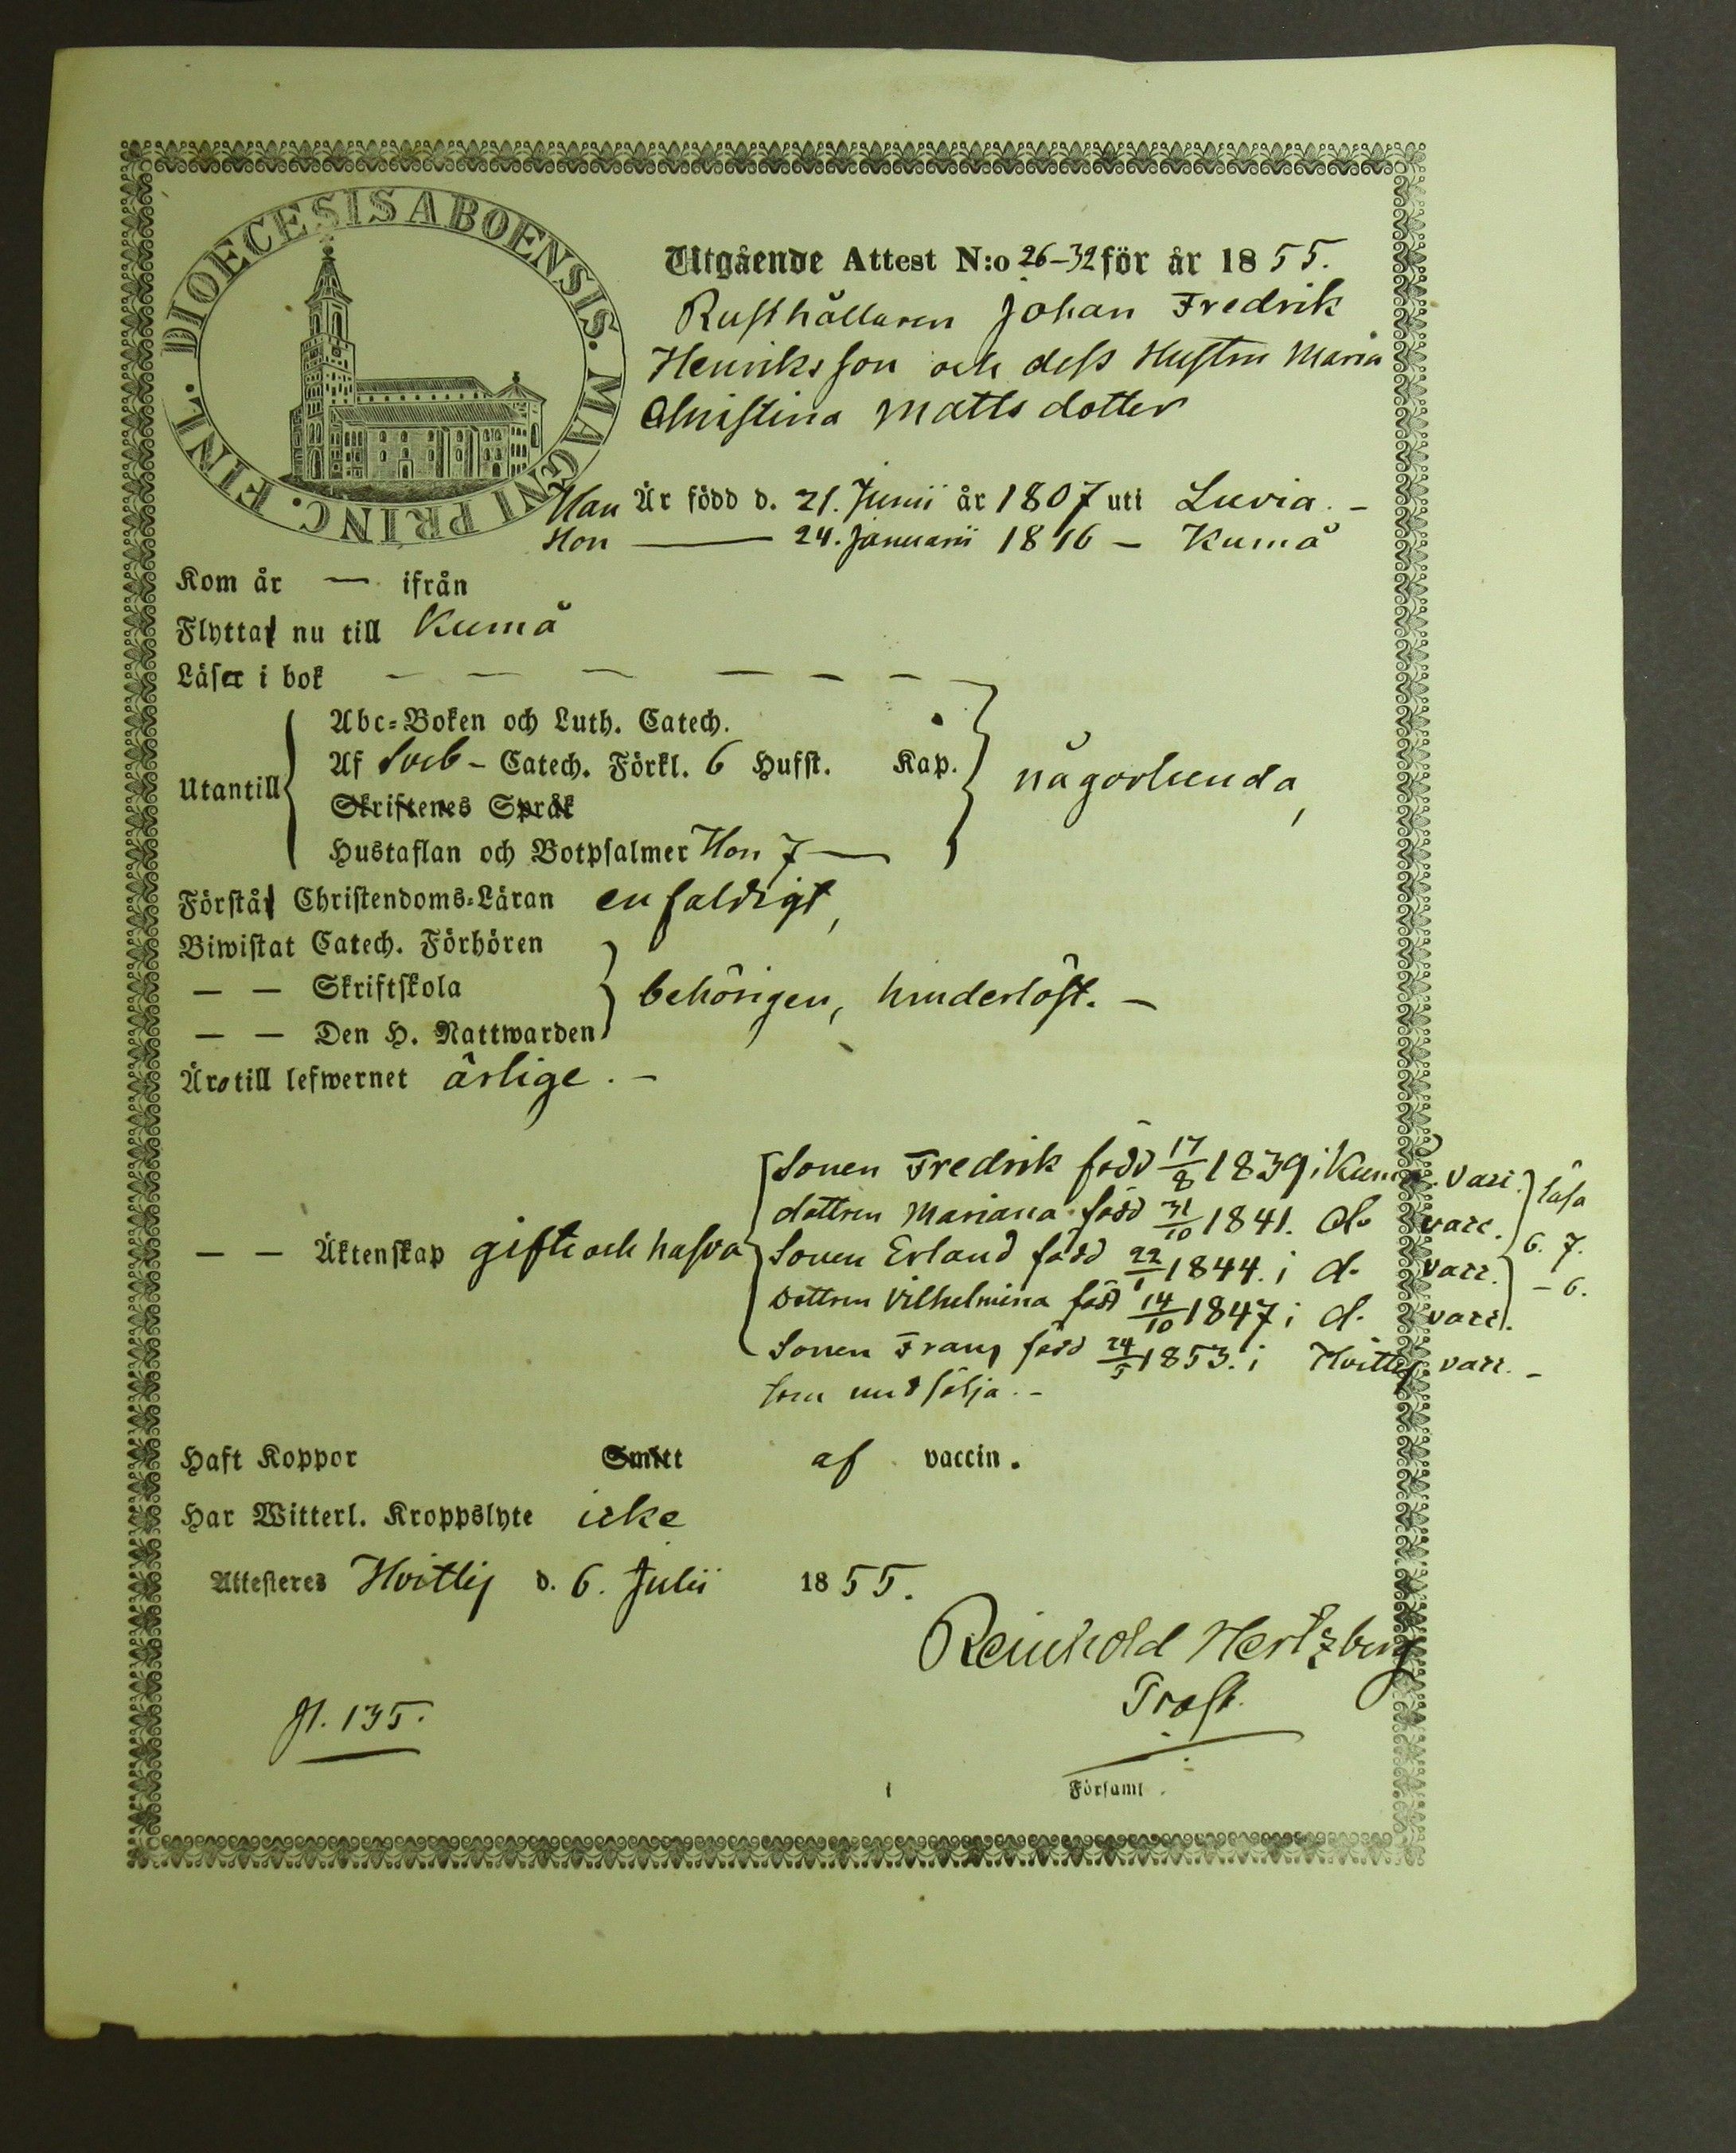 DIOECESIS ABOENSIS. MAGNI PRINC. FINL.
Utgående Attest N:o 26-32 för år 1855.
Rusthållaren Johan Fredrik
Henriksson och dess Hustru Maria
Christina Mattsdotter
Han Är född d. 21. Junii år 1807 uti Luvia. -
Hon — 24. Januarii 1816 - Kumå
Kom år — ifrån
Flytta nu till Kumå
Läser i bok — — — — — —
Abc-Boken och Luth. Catech.
Utantill Af Sveb- Catech. Förkl. 6 Hufst. Kap. någorlunda,
Skriftenes Språk
Hustaflan och Botpsalmer Hon 7 —
Förstå Christendoms-Läran enfaldigt,
Biwistat Catech. Förhören
— — Skriftskola behörigen, hinderlöst. -
— — Den H. Nattwarden
Äro till lefwernet ärlige. -
Sonen Fredrik född 17/8 1839 i Kumå. vacc. läsa
dottren Mariana född 31/10 1841. do vacc.
— — Äktenskap gifte och hafva Sonen Erland född 22/1 1844. i do vacc. 6. 7.
Dottren Vilhelmina född 14/10 1847 i do vacc. - 6.
Sonen Frans född 24/5 1853. i Hvittis vacc. -
som medfölja. -
Haft Koppor Smitt af vaccin.
Har Witterl. Kroppslyte icke
Attesteres Hvittis d. 6. Julii 1855.
Reinhold Hertzberg
Prost.
135.
i Församl.